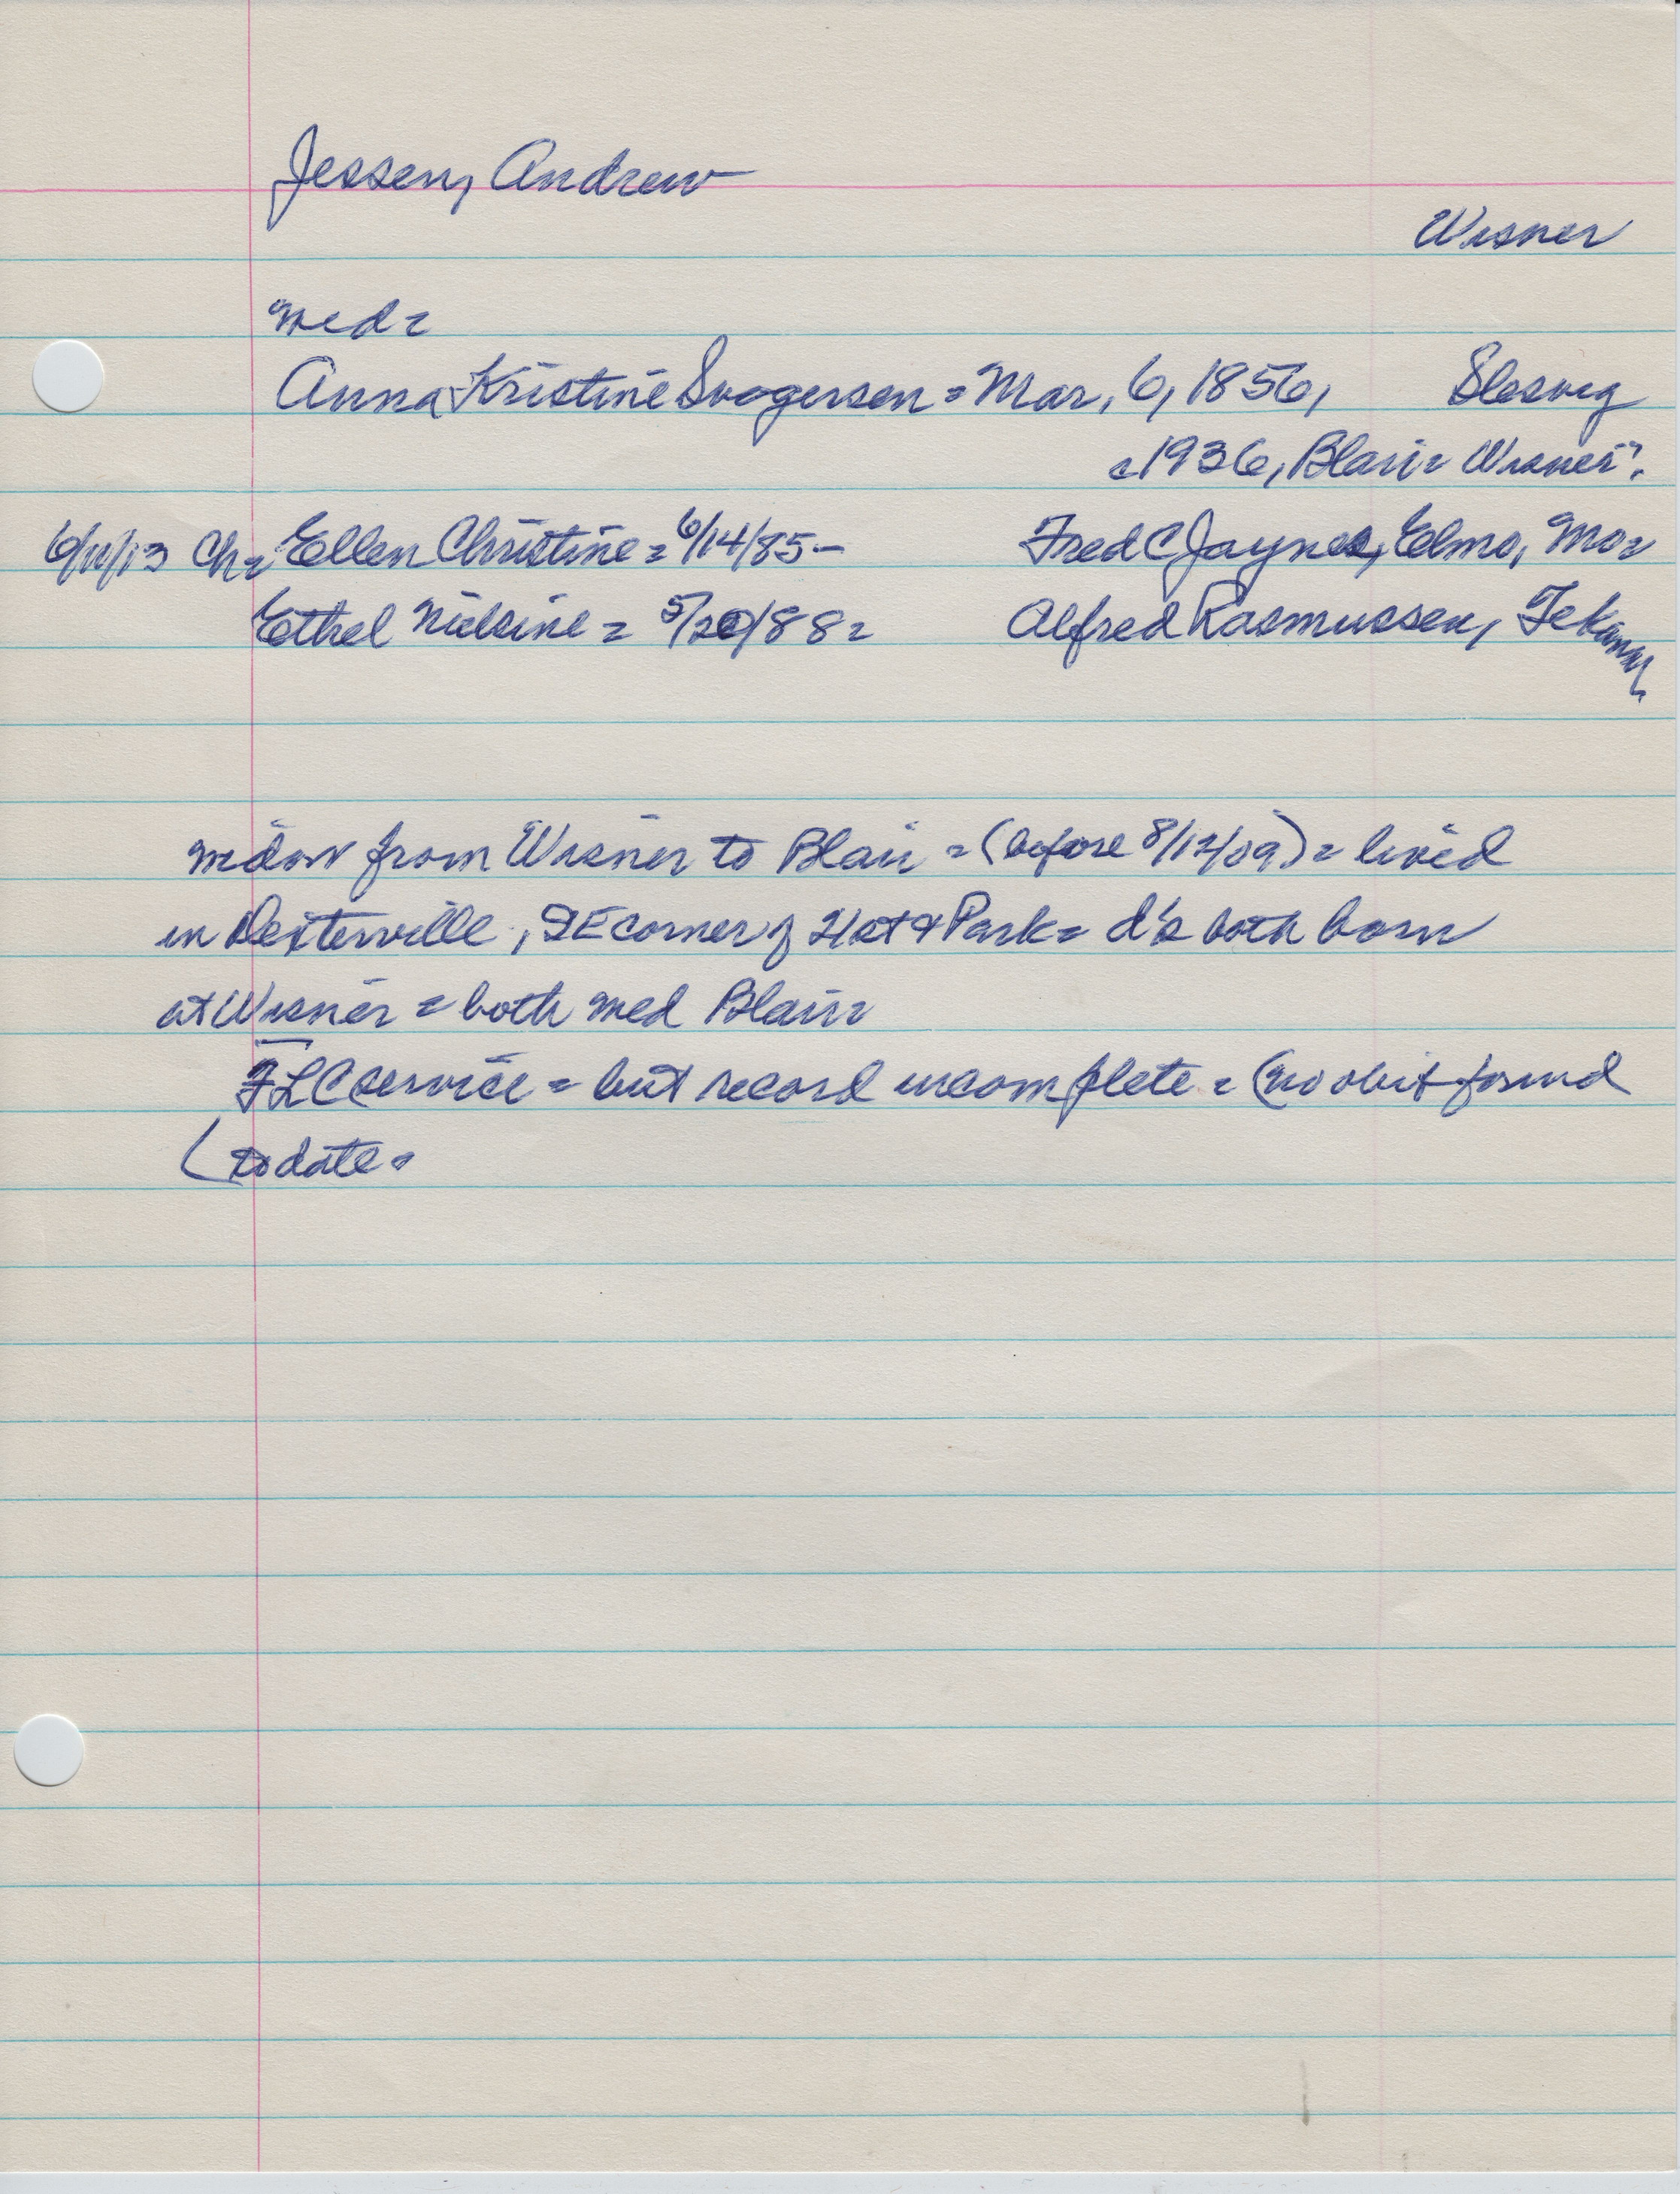 Jessen, Andrew
Wisner
med =
Anna Kristine Svogersen = Mar, 6, 1856, Slesvig
= 1936, Blair = Wisner".
6/11/13 Ch = Ellen Christine = 6/14/85 - Fred C Jaynes, Elmo, Mo =
Ethel Nielsine = 5/20/88 = Alfred Rasmussen, Tekamah
widow from Wisner to Blair = (before 8/12/09) = lived
in Dexterville, SE corner of 21st & Park = d's both born
at Wisner = both med Blair =
FLC service = but record incomplete = (no obit found
(to date =